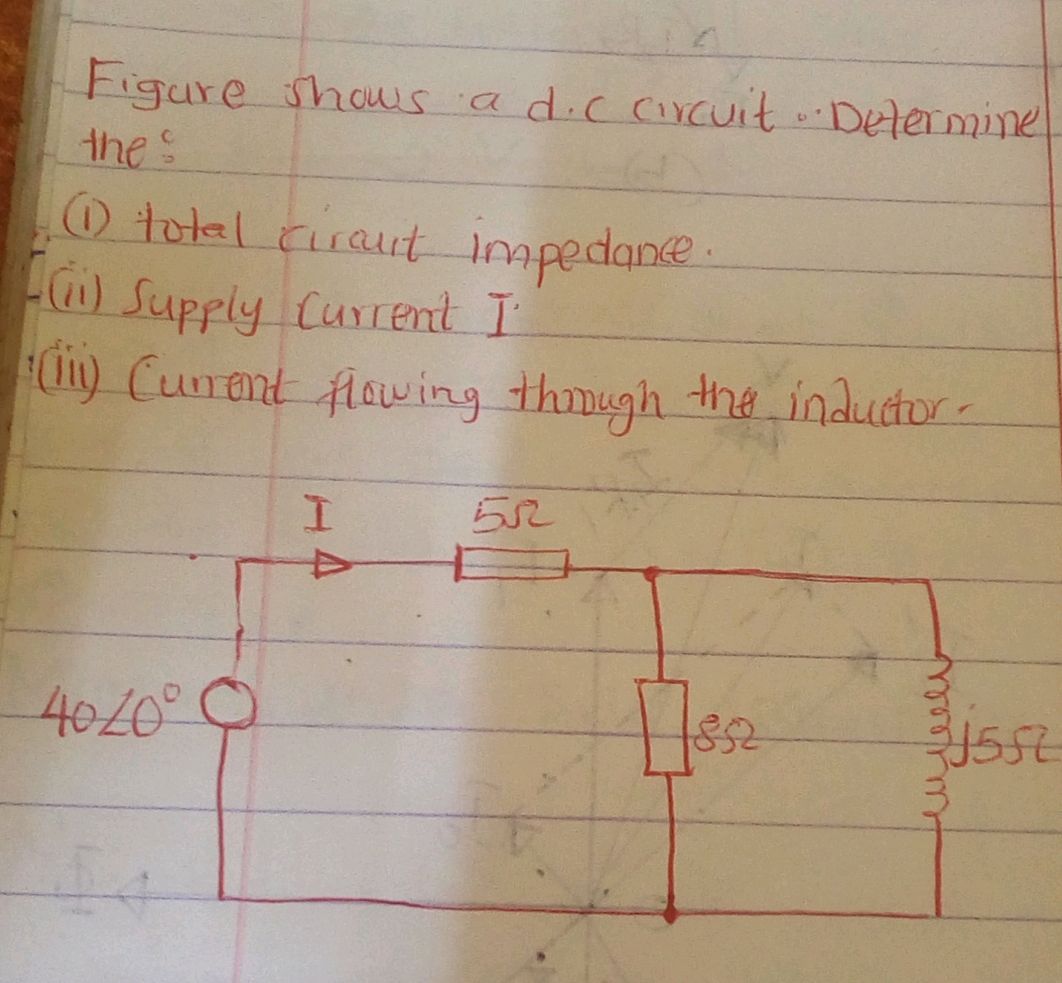 Figure shows a d.c circuit. Determine
the:
(i) total circuit impedance.
(ii) Supply Current I
(iii) Current flowing through the inductor.
I
5Ω
40∠0°
8Ω
j5Ω